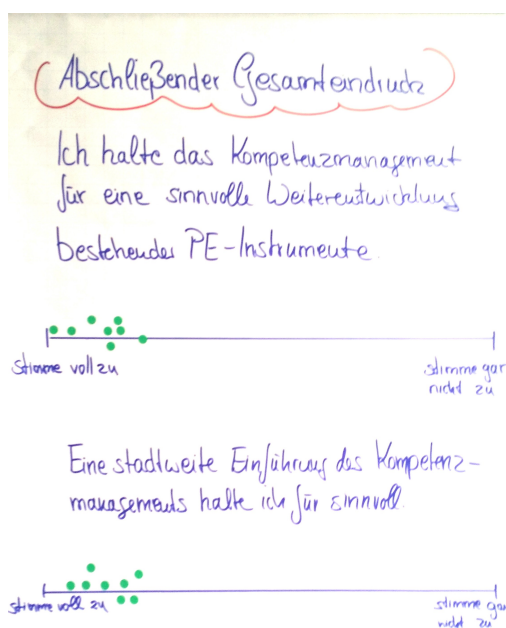 Abschließender Gesamteindruck
Ich halte das Kompetenzmanagement
für eine sinnvolle Weiterentwicklung
bestehender PE-Instrumente.
stimme voll zu
stimme gar
nicht zu
Eine stadtweite Einführung des Kompetenz-
managements halte ich für sinnvoll.
stimme voll zu
stimme gar
nicht zu